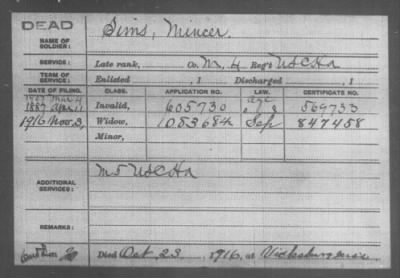 DEAD
NAME OF SOLDIER: Sims, Mincer.
SERVICE: Late rank, Co. M, 4 Reg't USCHa
TERM OF SERVICE: Enlisted , 1 Discharged , 1
DATE OF FILING. CLASS. APPLICATION NO. LAW. CERTIFICATE NO.
1907 Mar 4 age
1887 Apr 11 Invalid, 605730 569733
1916 Nov. 3, Widow, 1053684 Sep 847458
Minor,
ADDITIONAL SERVICES: M 5 USCHa
REMARKS:
Died Oct 23, 1916, at Vicksburg Miss